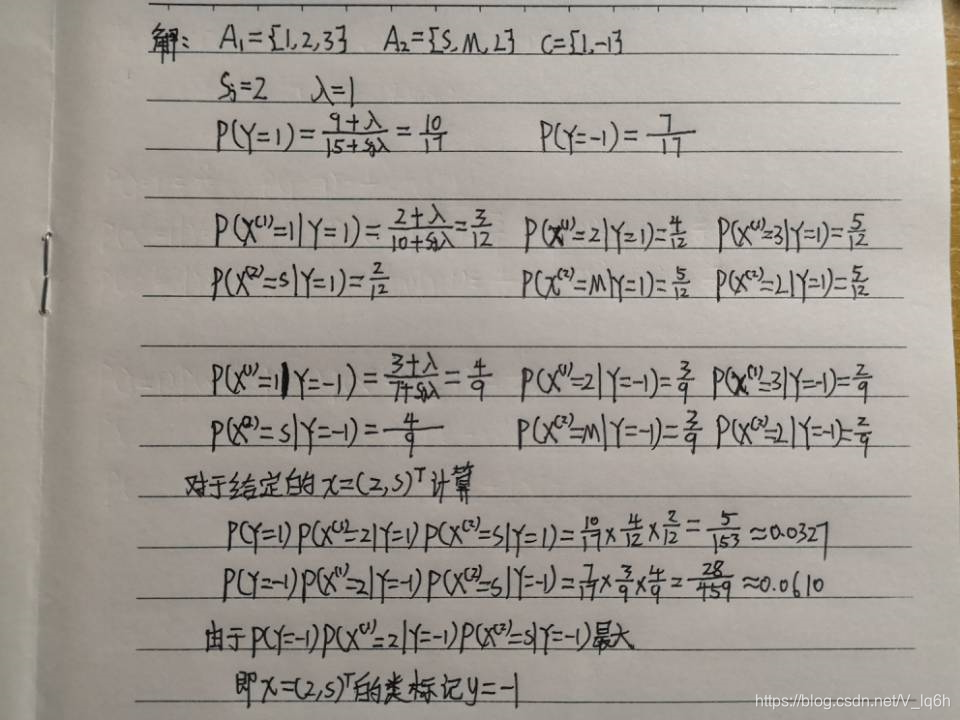 解: A₁={1,2,3} A₂={S,M,L} C={1,-1}
Sⱼ=2 λ=1
P(Y=1)=(9+λ)/(15+Sⱼλ)=10/17 P(Y=-1)=7/17
P(X⁽¹⁾=1|Y=1)=(2+λ)/(10+Sⱼλ)=3/12 P(X⁽¹⁾=2|Y=1)=4/12 P(X⁽¹⁾=3|Y=1)=5/12
P(X⁽²⁾=S|Y=1)=2/12 P(X⁽²⁾=M|Y=1)=5/12 P(X⁽²⁾=L|Y=1)=5/12
P(X⁽¹⁾=1|Y=-1)=(3+λ)/(7+Sⱼλ)=4/9 P(X⁽¹⁾=2|Y=-1)=3/9 P(X⁽¹⁾=3|Y=-1)=2/9
P(X⁽²⁾=S|Y=-1)=4/9 P(X⁽²⁾=M|Y=-1)=3/9 P(X⁽²⁾=L|Y=-1)=2/9
对于给定的 x=(2,S)ᵀ 计算
P(Y=1)P(X⁽¹⁾=2|Y=1)P(X⁽²⁾=S|Y=1)=10/17×4/12×2/12=5/153≈0.0327
P(Y=-1)P(X⁽¹⁾=2|Y=-1)P(X⁽²⁾=S|Y=-1)=7/17×3/9×4/9=28/459≈0.0610
由于P(Y=-1)P(X⁽¹⁾=2|Y=-1)P(X⁽²⁾=S|Y=-1)最大
即 x=(2,S)ᵀ的类标记y=-1
https://blog.csdn.net/V_lq6h